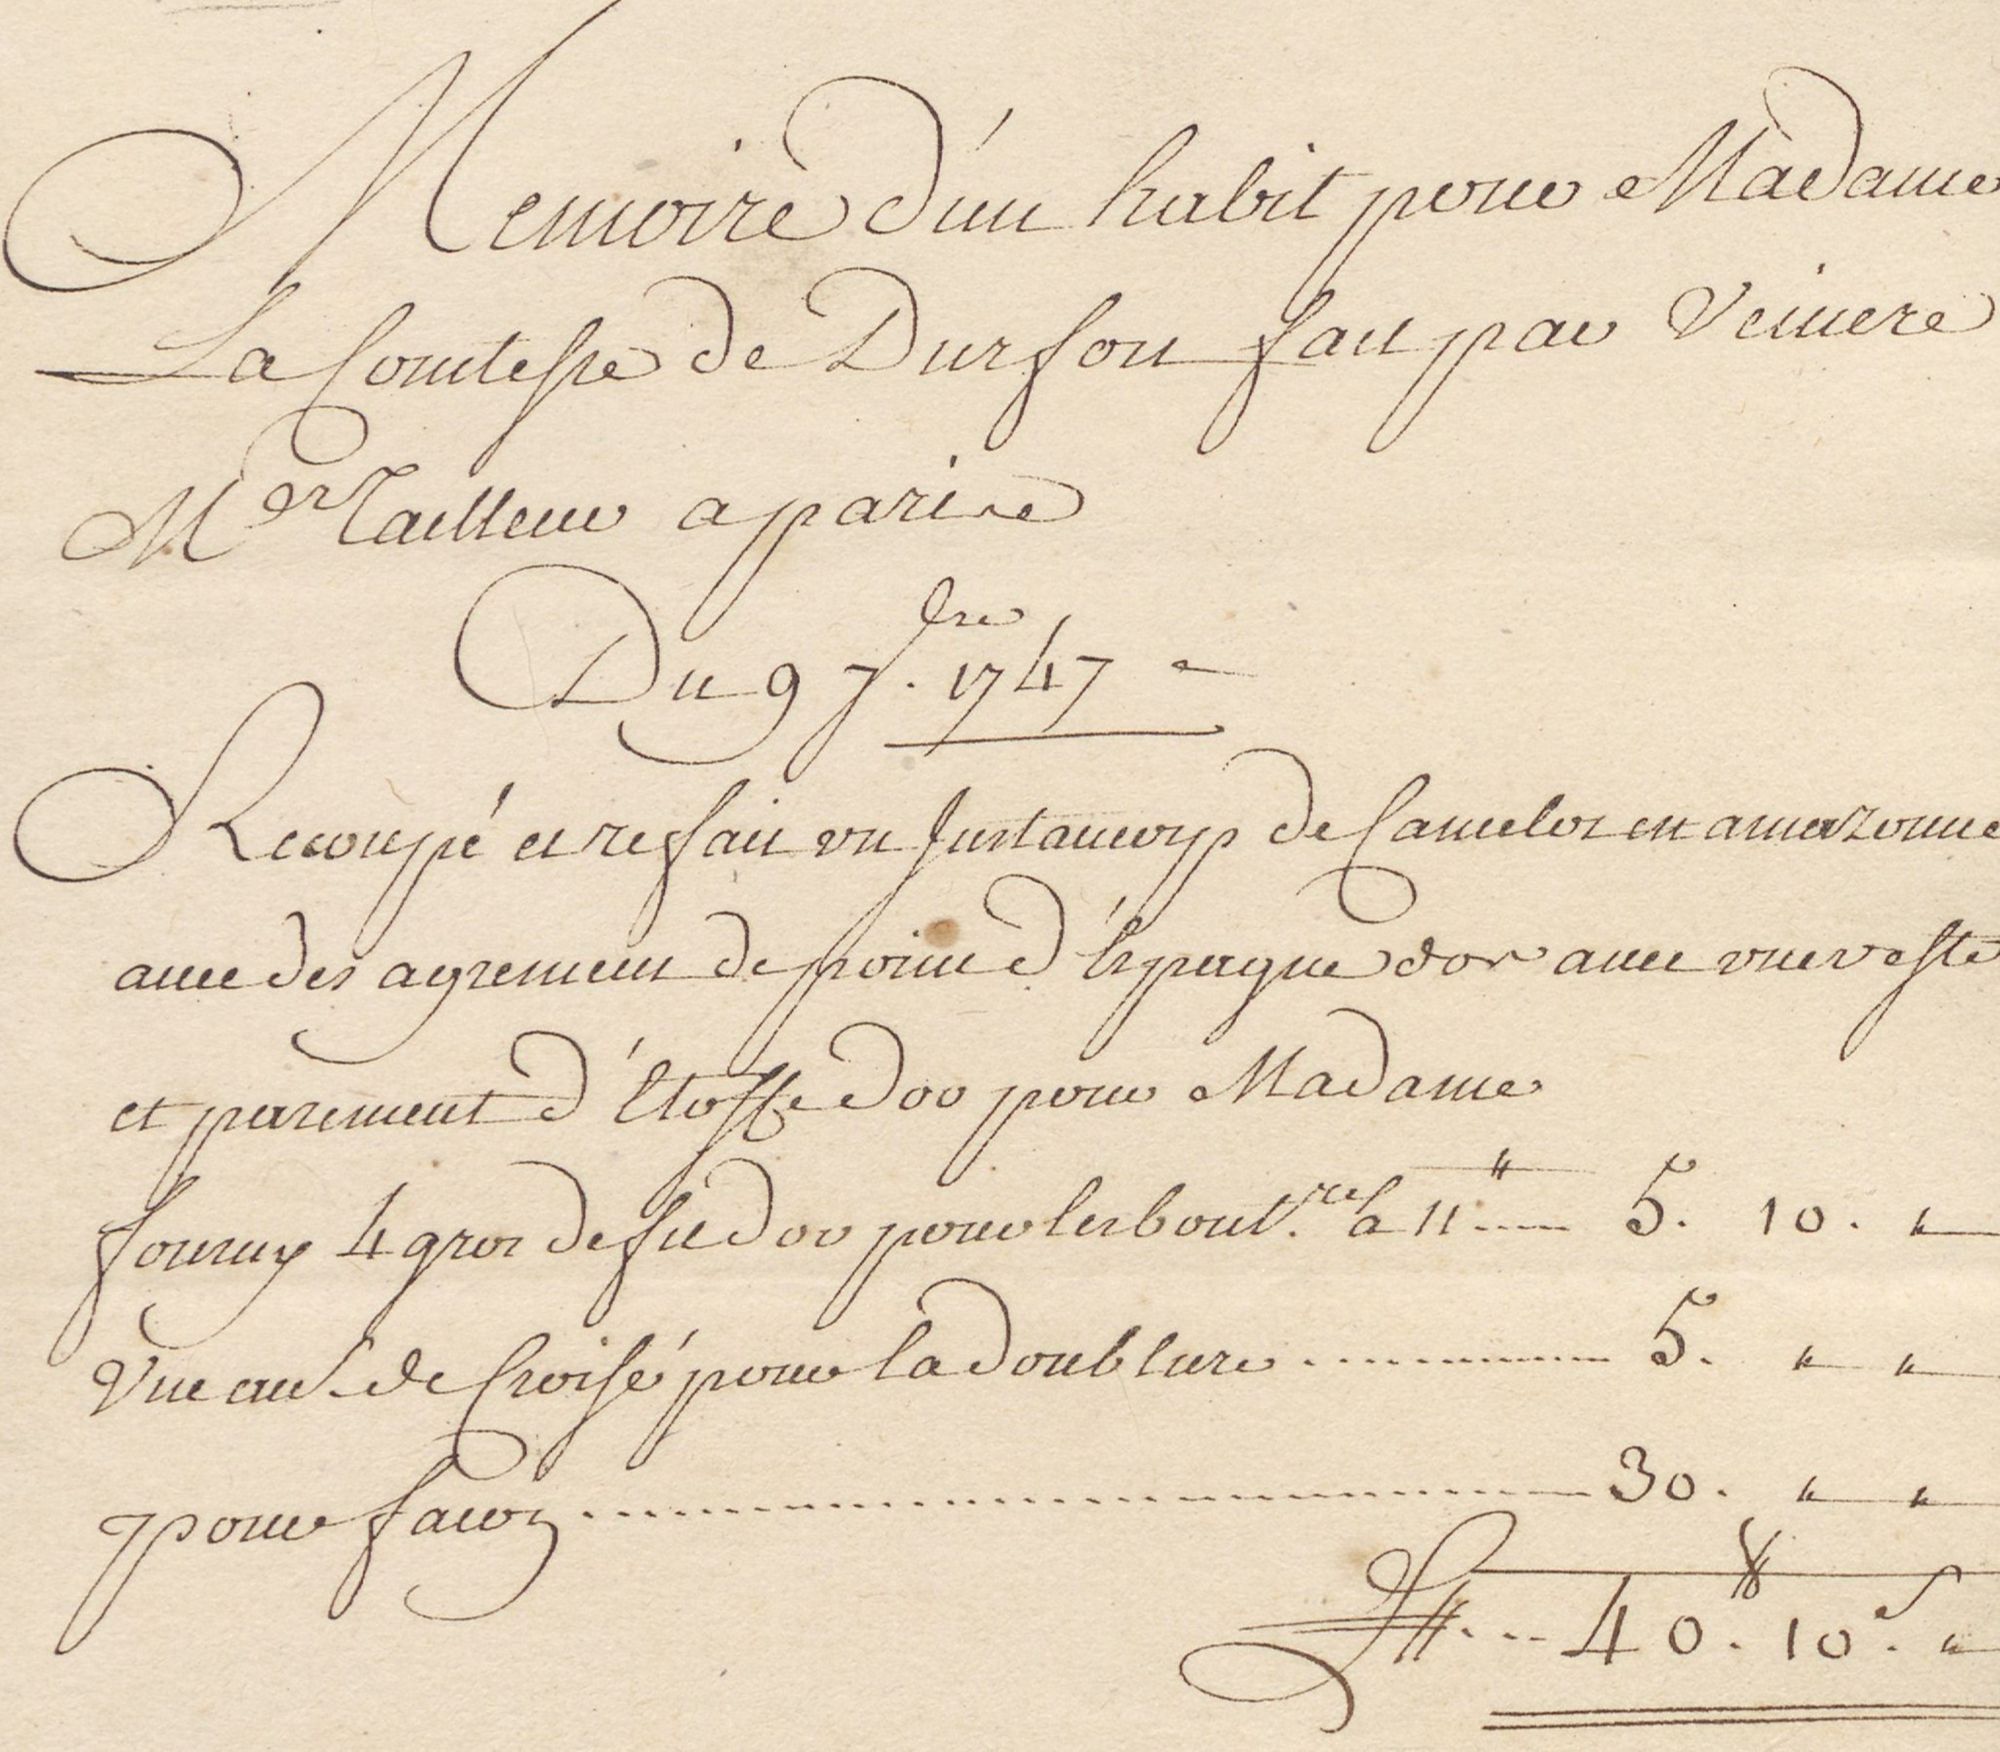 Memoire d'un habit pour Madame
La Comtesse de Durfort fait par
Mer Tailleur a paris
Du 9 7bre. 1747
Recoupé et refait vn Justaucorp de Camelot en amazonne
auec des agrement de point d'Espagne dor auec vne veste
et parement d'Etoffe dor pour Madame
fourny 4 gros de fil dor pour les bout.res a 11 .... 5. 10. "
Vne au. de Croisé pour la doublure ........ 5. " "
pour facon ........ 30. " "
40. 10s. "